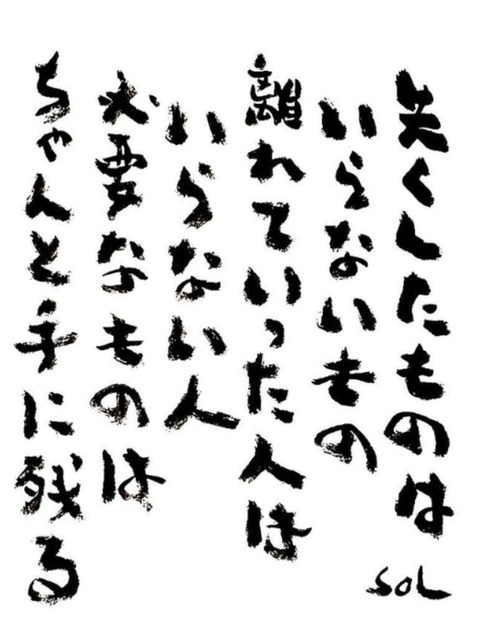 失くしたものは
いらないもの
離れていった人は
いらない人
必要なものは
ちゃんと手に残る
SOL